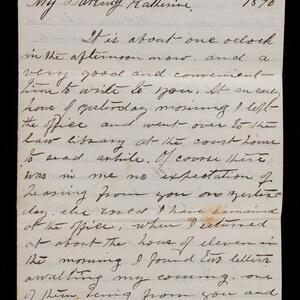 My Darling Katherine, 1890
It is about one oclock
in the afternoon now, and a
very good and convenient
time to write to you. At an early
hour of yesterday morning I left
the office and went over to the
law library at the court house
to read awhile. Of course there
was in me no expectation of
hearing from you on yester-
day, else I have remained
at the office, when I returned
at about the hour of eleven in
the morning I found letters
awaiting my coming, one
of them being from you and